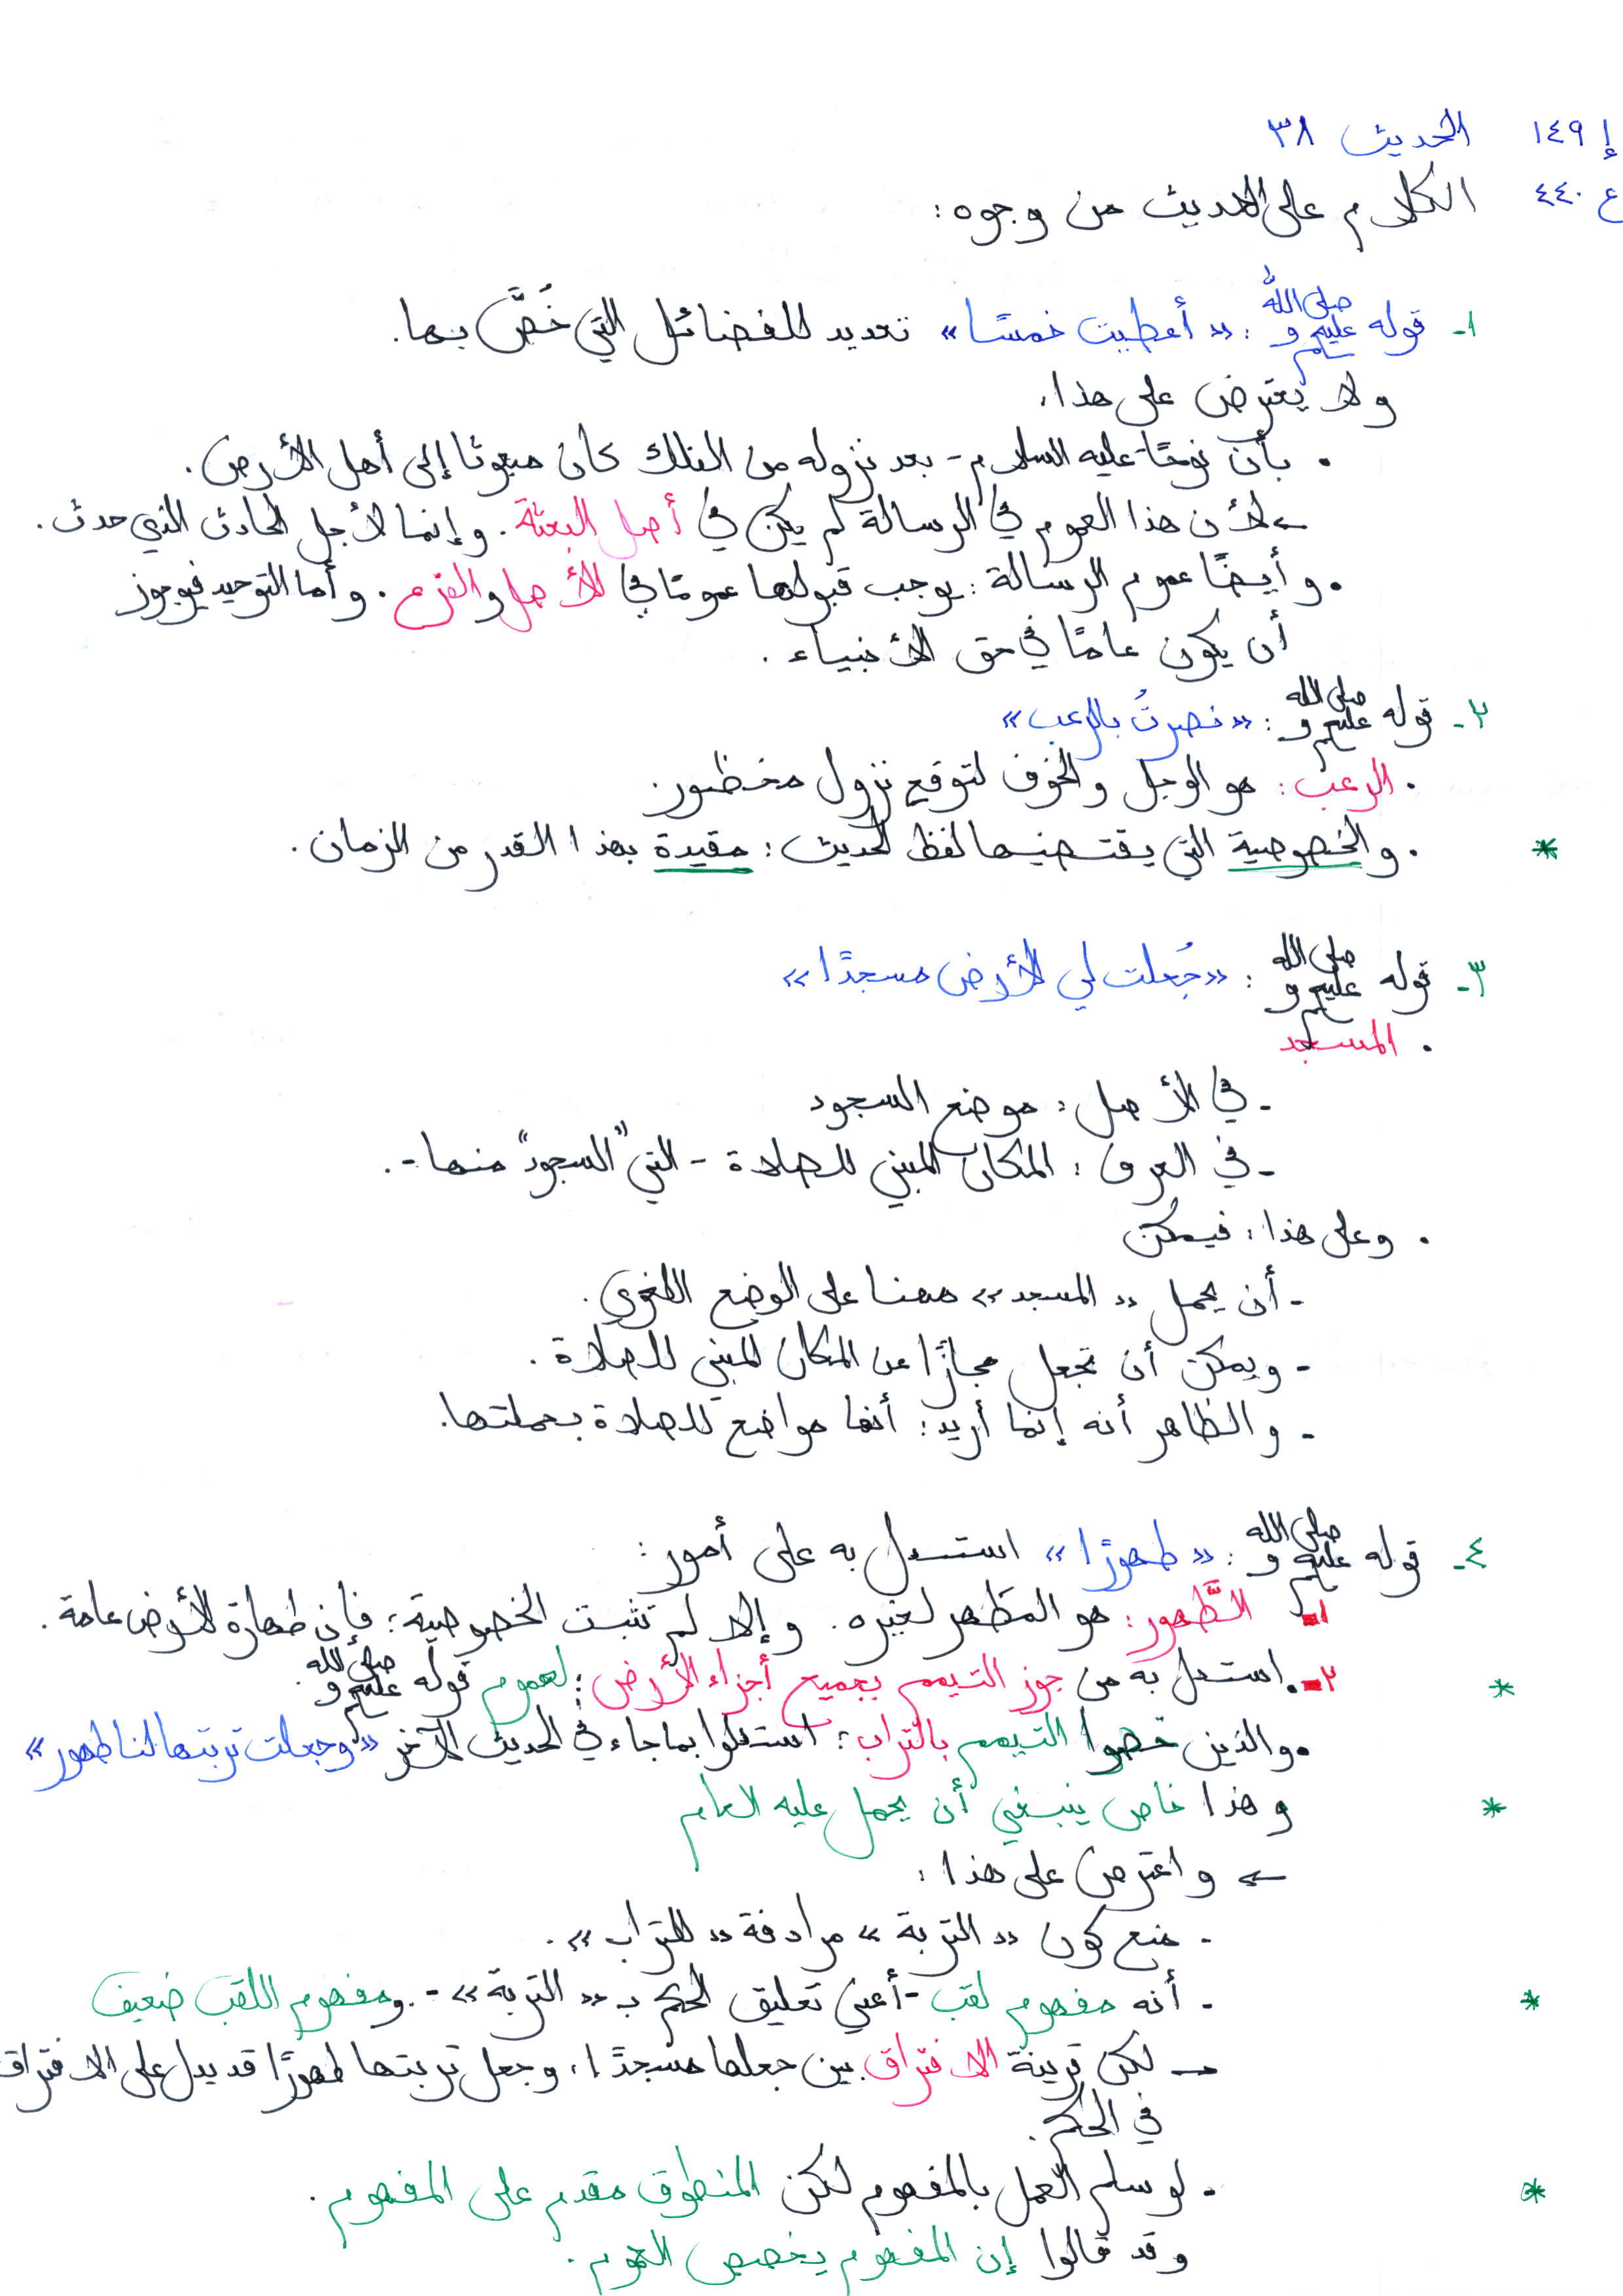 إ ١٤٩ الحديث ٣٨
ع ٤٤٠ الكلام على الحديث من وجوه:
١- قوله صلى الله عليه وسلم: «أعطيت خمسًا» تعديد للفضائل التي خُصَّ بها.
ولا يعترض على هذا:
• بأن نوحًا - عليه السلام - بعد نزوله من الفلك كان مبعوثا إلى أهل الأرض.
← لأن هذا العموم في الرسالة لم يكن في أصل البعثة. وإنما لأجل الحادث الذي حدث.
• وأيضًا عموم الرسالة: يوجب قبولها عمومًا في الأصل والفرع. وأما التوحيد فيجوز
أن يكون عامًا في حق الأنبياء.
٢- قوله صلى الله عليه وسلم: «نصرتُ بالرعب»
• الرعب: هو الوجل والخوف لتوقع نزول محظور.
* • والخصوصية التي يقتضيها لفظ الحديث: مقيدة بهذا القدر من الزمان.
٣- قوله صلى الله عليه وسلم: «جُعلت لي الأرض مسجدًا»
• المسجد
- في الأصل: موضع السجود
- في العرف: المكان المبني للصلاة - التي "السجود" منها -.
• وعلى هذا: فيمكن
- أن يحمل «المسجد» ههنا على الوضع اللغوي.
- ويمكن أن تجعل مجازًا عن المكان المبني للصلاة.
- والظاهر أنه إنما أريد: أنها مواضع للصلاة بجملتها.
٤- قوله صلى الله عليه وسلم: «طهورًا» استدل به على أمور:
١- الطَّهور: هو المطهر لغيره. وإلا لم تثبت الخصوصية؛ فإن طهارة الأرض عامة.
* ٢- استدل به من جوز التيمم بجميع أجزاء الأرض؛ لعموم قوله صلى الله عليه وسلم.
• والذين خصوا التيمم بالتراب: استدلوا بما جاء في الحديث الآخر «وجعلت تربتها لنا طهور»
* وهذا خاص ينبغي أن يحمل عليه العام
← واعترض على هذا:
- منع كون «التربة» مرادفة «للتراب».
* - أنه مفهوم لقب - أعني تعليق الحكم بـ «التربة» -. ومفهوم اللقب ضعيف
← لكن قرينة الافتراق بين جعلها مسجدًا، وجعل تربتها طهورًا قد يدل على الافتراق
في الحكم.
* - لو سلم العمل بالمفهوم لكن المنطوق مقدم على المفهوم.
وقد قالوا إن المفهوم يخصص العموم.